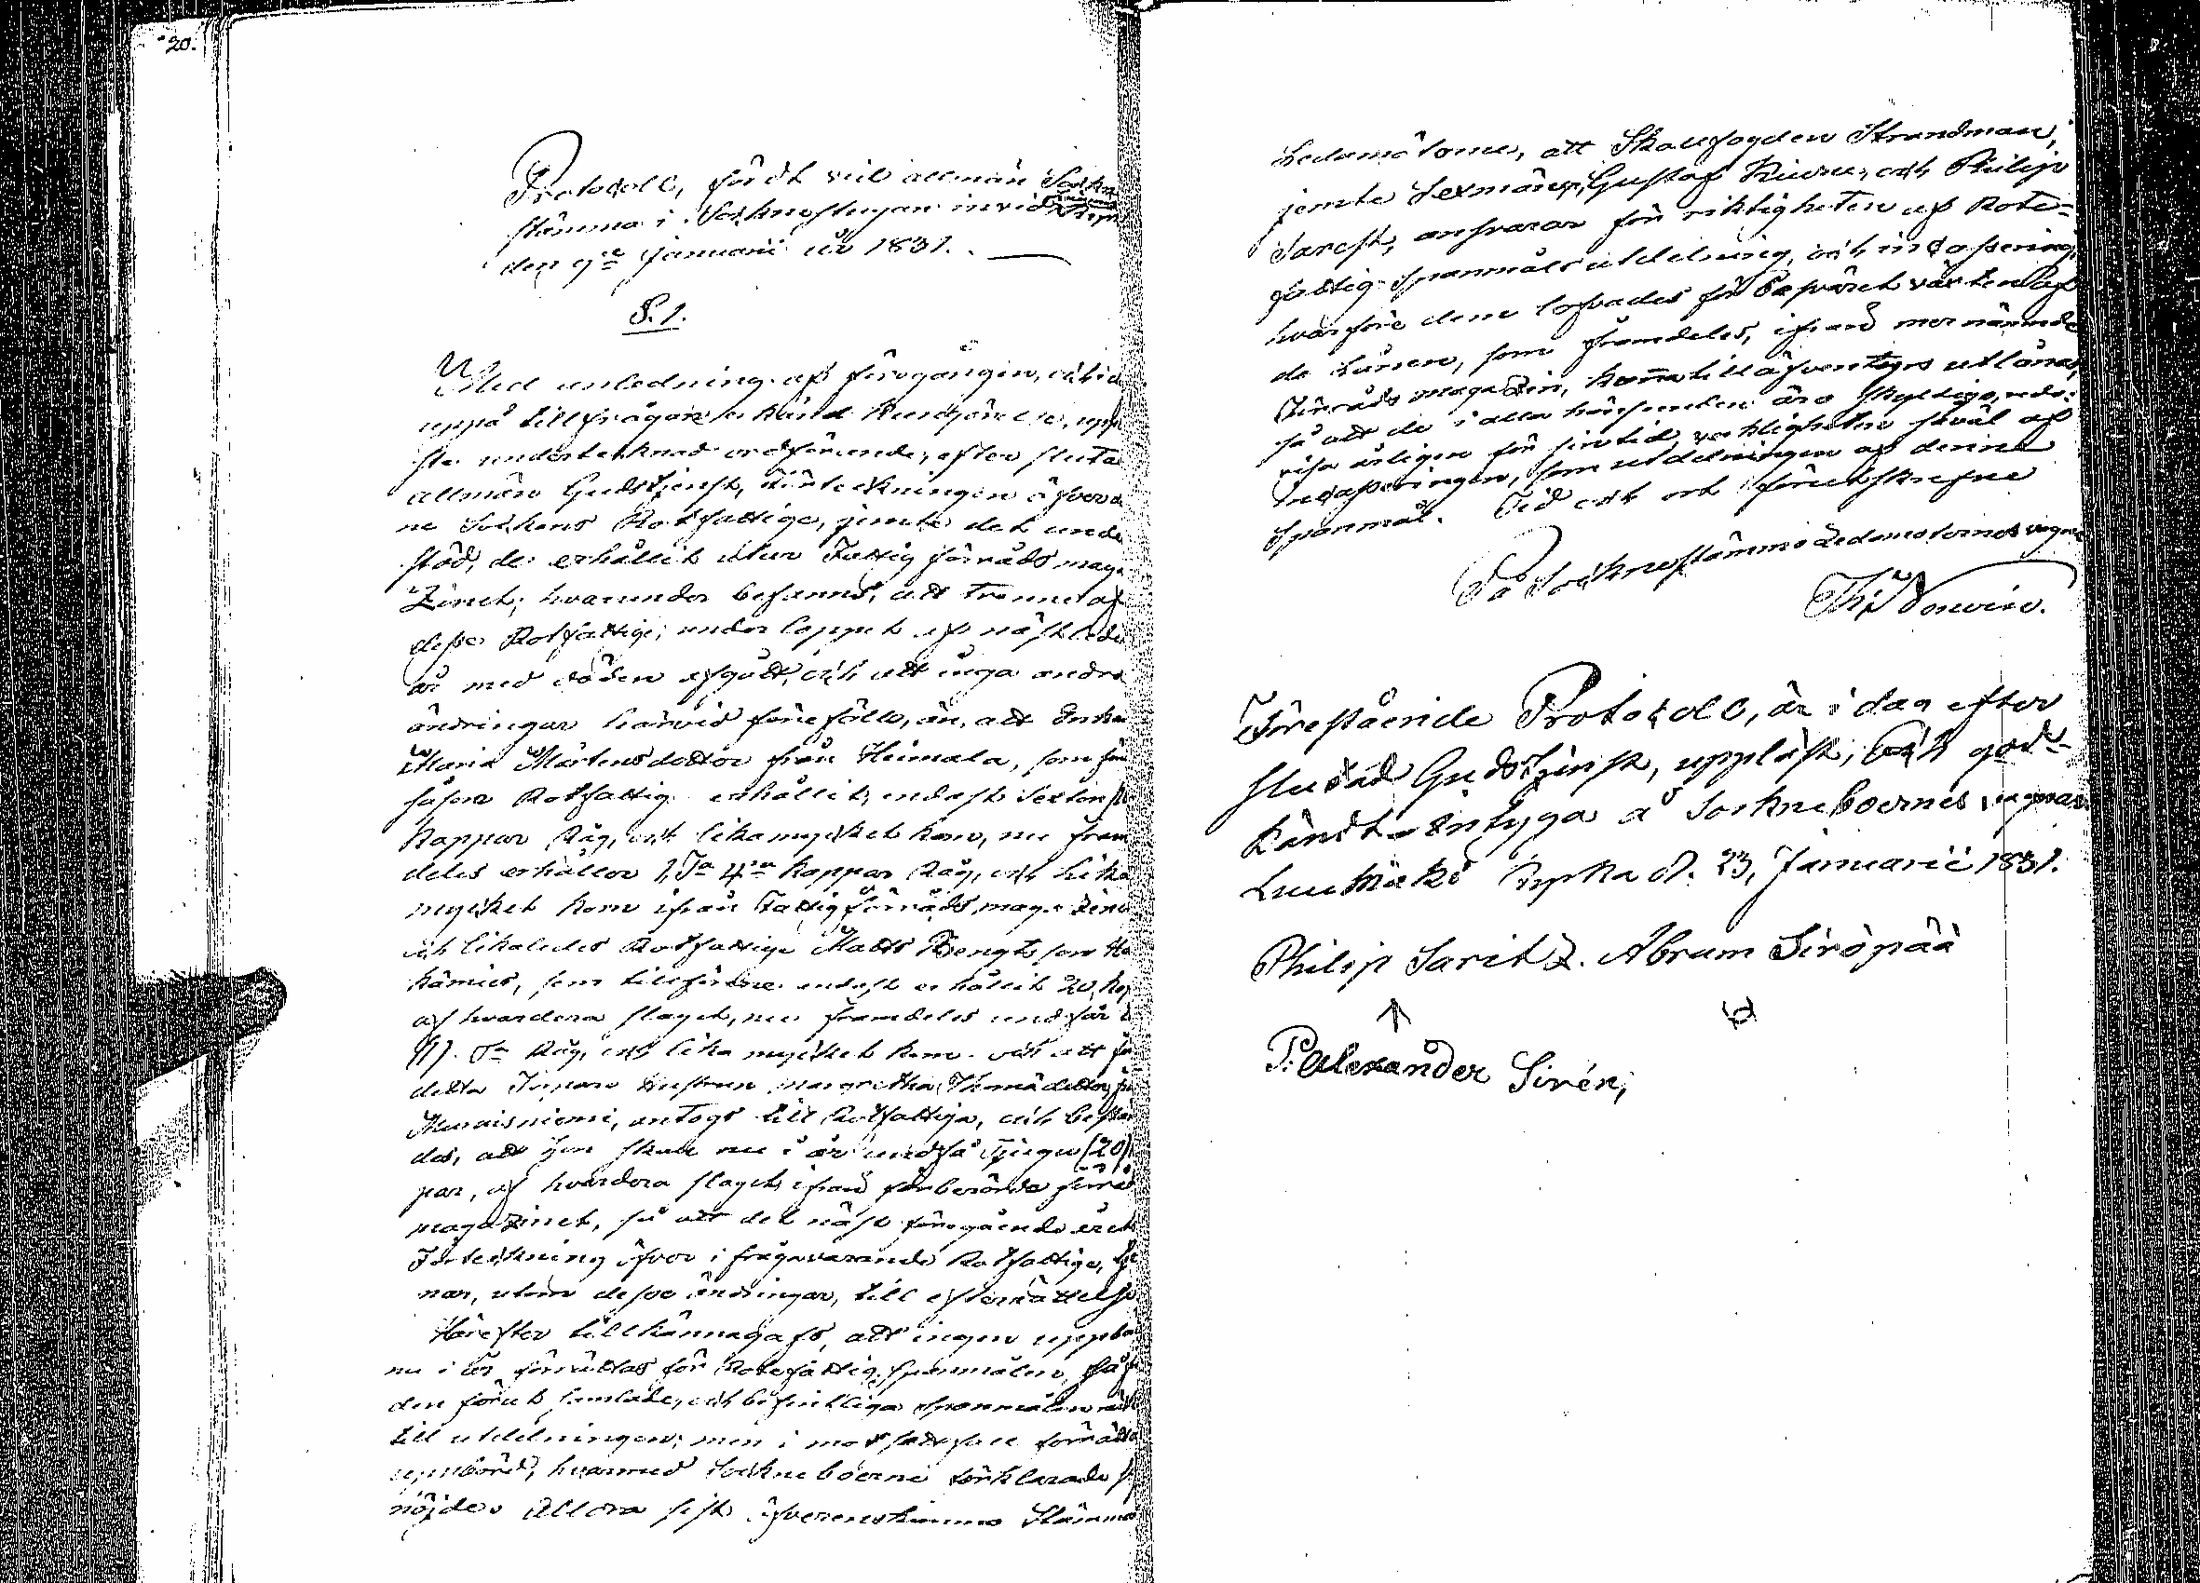 20.
Protocoll, fördt vid allmän Sockne
stämma i Socknestugan invid
den 9de Januarii år 1831.
§. 1.
Med anledning af föregången, och
uppå tillfrågan
ste undertecknad ordförande, efter slutad
allmän Gudstjenst, förteckningen öfver
ne Sockens Rotfattige, jemte det under
stöd, de erhållit utur Fattig förråds maga
zinet; hvarunder befanns, att trenne af
desse Rotfattige, under loppet af nästledi
år med döden afgått, och att inga andra
ändringar härvid föreföllo, än, att Enkan
Maria Mårtensdotter från Heimala, som
såsom Rotfattig erhållit endast Sexton
Kappar Råg, och lika mycket korn, nu fram
deles erhåller 1. Ta 4ra kappar Råg, och lika
mycket korn ifrån Fattig förråds maga zinet
och likaledes Rotfattige Matts Bengtsson
som tillförene endast erhållit 20, kap
af hvardera slaget, nu framdeles undfår
(1). Ta Råg, och lika mycket korn. och att
detta Inhuse hustrun Margretha Thomædotter
antogs till Rotfattige, och beslöts
des, att hon skall nu i år undfå Tjugu (20)
par, af hvardera slaget ifrån förberörde förråds
magazinet, så att det näst föregående året
Förteckning öfver i fråga varande Rotfattige,
nar, utom desse ändringar, till efterrättelse
Härefter tillkännagafs, att ingen uppbörd
nu i år förrättas för Rotefattig, spanmålen,
den förut samlade, och befintliga spanmålen
till utdelningen; men i motsatt fall förrättas
uppbörd, hvarmed Sockneboerne förklarade
nöjde. Allra sist öfverenskommo Stämmo
Ledamöterne, att Skallfogden Strandman,
jemte Sexmännen, Gustaf Kiuru, och Philip
Sarest, ansvarar för riktigheten af Rote-
fattig Spannmåls utdelning, och indrifning,
hvarföre dem lofvades för besväret växten af
de Lånen, som framdeles, ifrån mernämnde
Förråds magazin, komma till äfventyrs utlånas,
så att de i alla hänseenden äro skyldige, redo-
visa årligen för sin tid, verkligheten såväl af
som utdelningen af denna
Spanmål. Tid och ort förutskrefne
På Sockne stämmo Ledamöternes vägnar
Th:
Förestående Protocoll, är i dag efter
slutad Gudstjenst, uppläst, och god-
kändt = intyga å Sockneboernes vägnar
Luumäki kyrka d. 23, Januarii 1831.
Philip Sarit Abram Siröpää
P. Alexander Sirén;